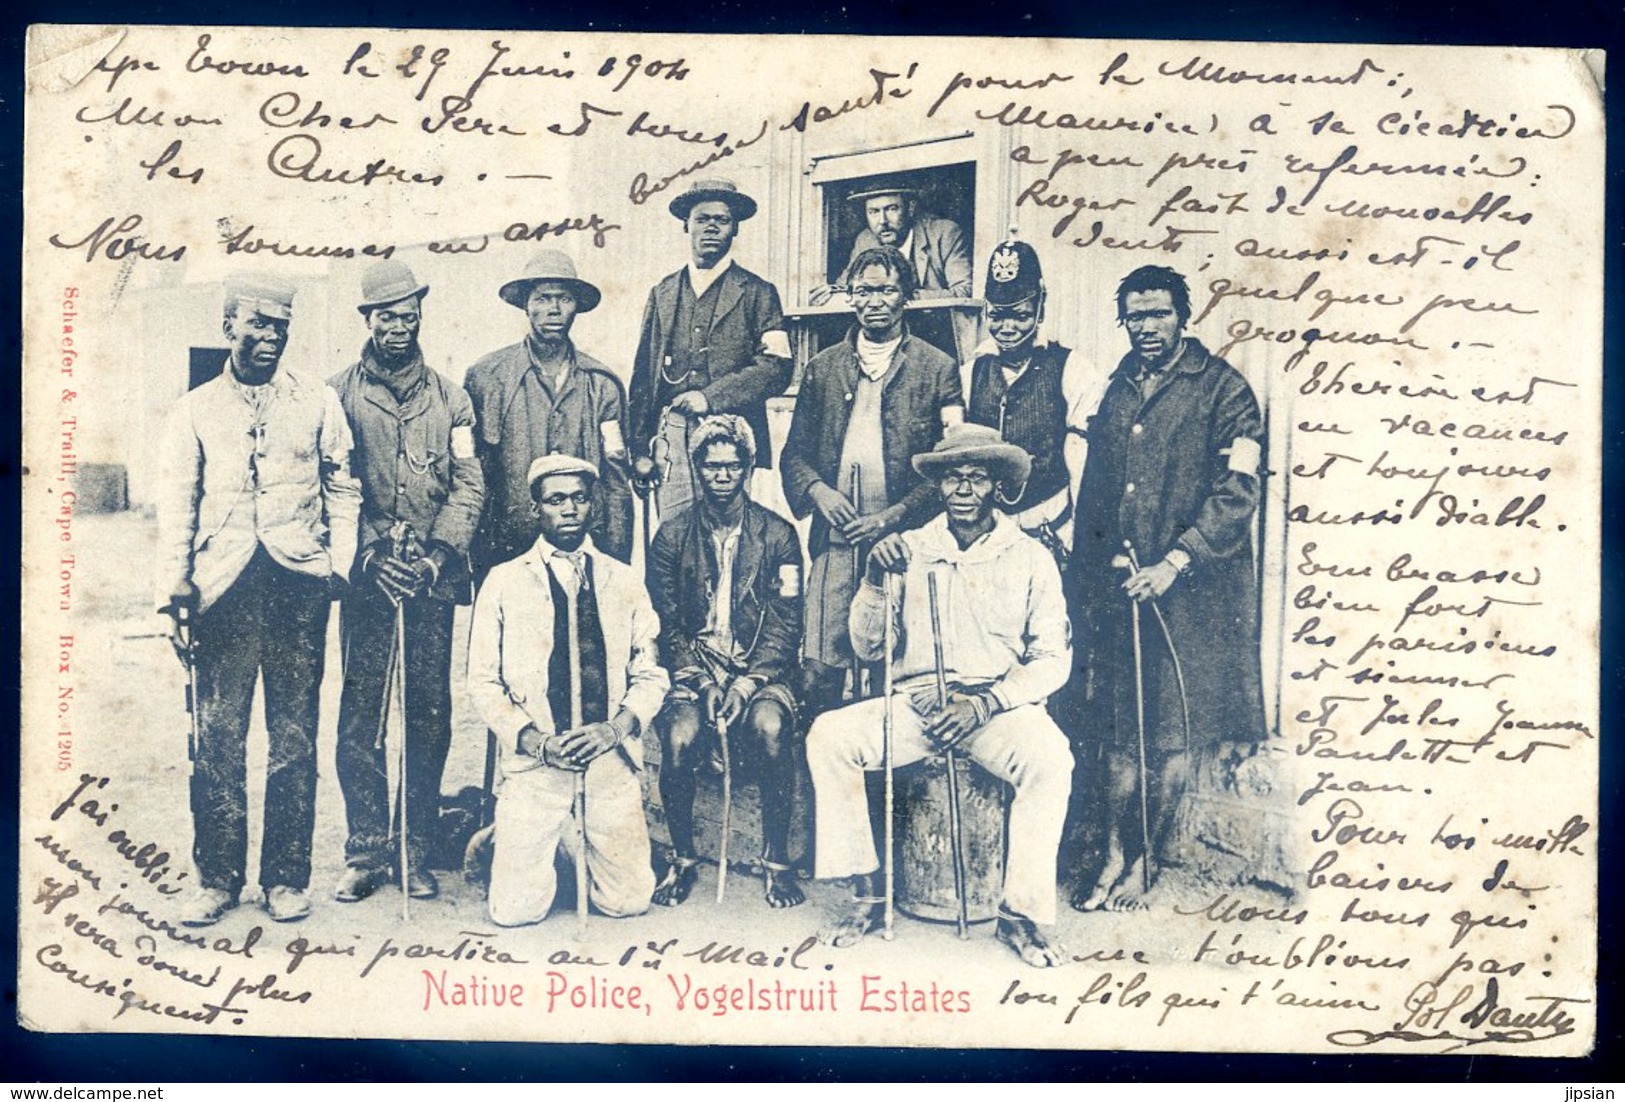 Town le 29 Juin 1904
Mon Cher Père et tous
les Autres. —
Nous sommes en assez bonne santé pour le Moment ;
Maurice à sa cicatrice
a peu près refermée :
Roger fait de nouvelles
dents ; aussi est-il
quelque peu
grognon. —
Thérèse est
en vacances
et toujours
aussi diable.
Embrasse
bien fort
les parisiens
et
et Jules Jeanne
Paulette et
Jean.
Pour toi mille
baisers de
Nous tous qui
ne t'oublions pas :
ton fils qui t'aime
J'ai oublié
mon journal qui partira au 1er Mail.
Il sera donc plus
conséquent.
Native Police, Vogelstruit Estates
Schaefer & Traill, Cape Town Box No. 1205
jipsian